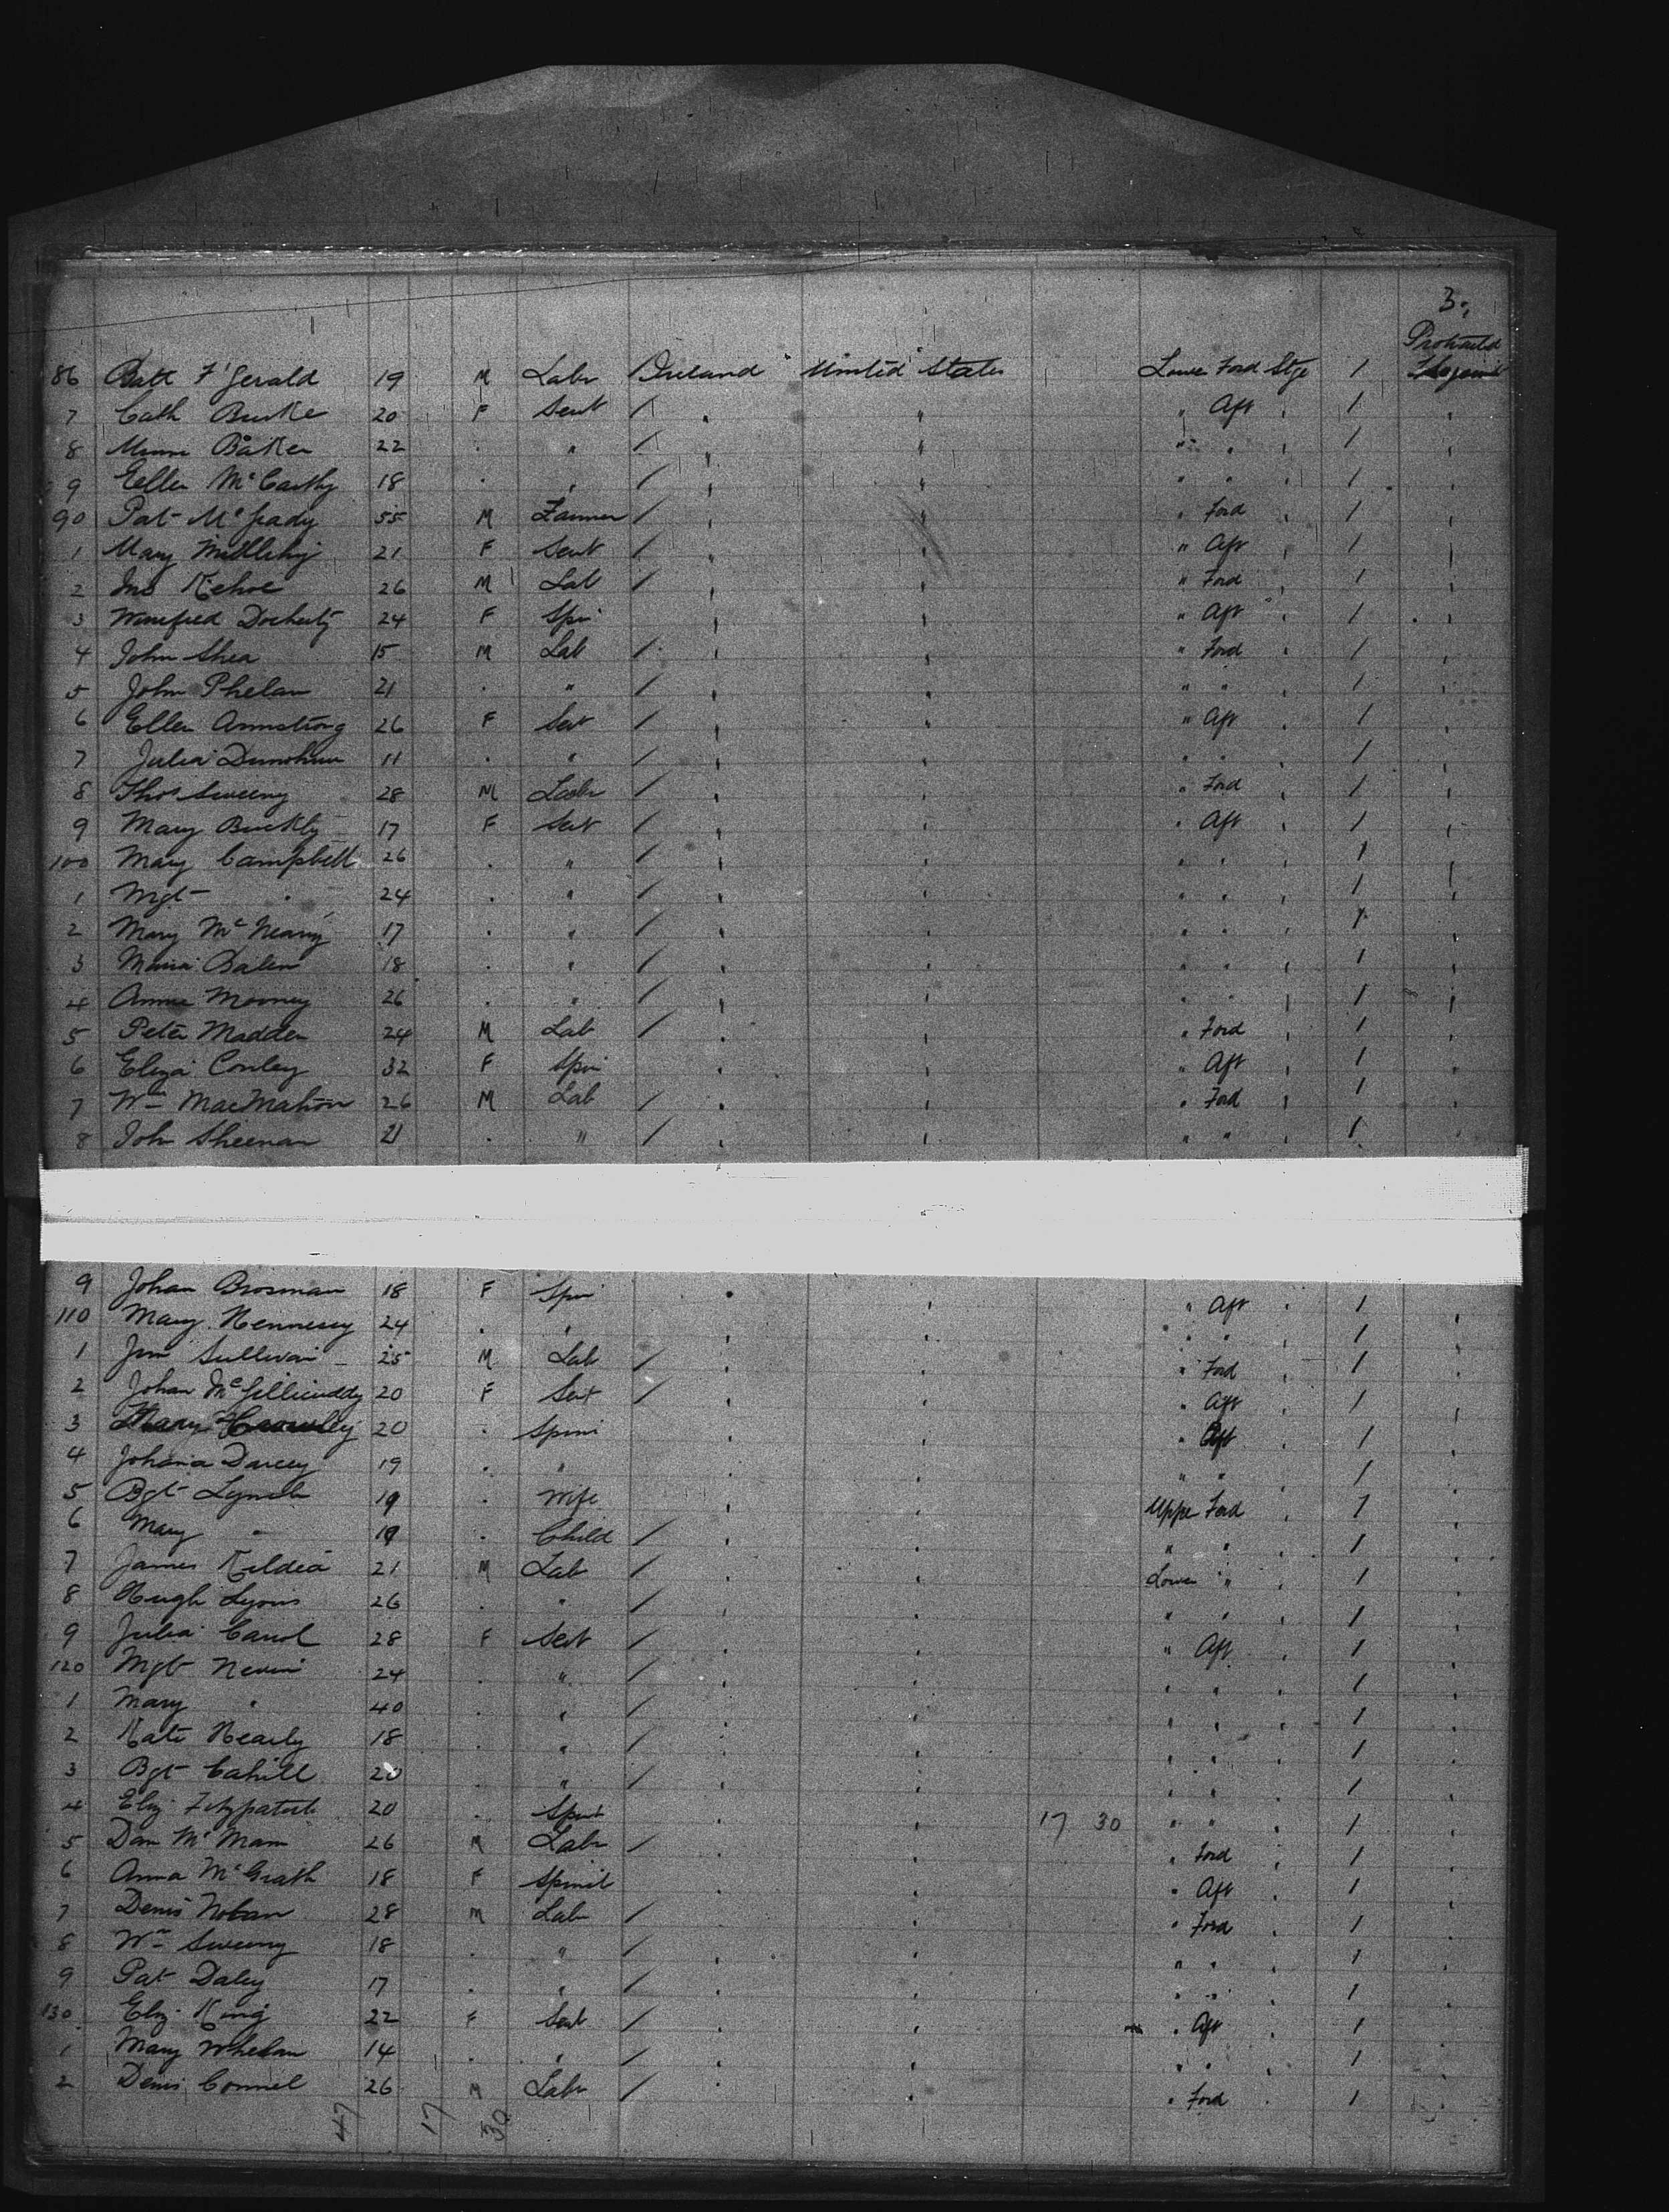 3.
Protracted
86 Batt F'Gerald 19 M Labr Ireland United States Lower Ford Stge 1
7 Cath Burke 20 F Servt / " " " Aft " 1 "
8 Minnie Baker 22 " " / " " " " " 1 "
9 Ellen McCarthy 18 " " / " " " " " 1 "
90 Pat McGrady 55 M Farmer / " " " Ford " 1 "
1 Mary 21 F Servt / " " " Aft " 1 "
2 Jno Kehoe 26 M Lab / " " " Ford " 1 "
3 Winefred Docherty 24 F Spi " " " Aft " 1 "
4 John Shea 15 M Lab / " " " Ford " 1 "
5 John Phelan 21 " " / " " " " " 1 "
6 Ellen Armstrong 26 F Sert / " " " Aft " 1 "
7 Julia Dunohue 11 " " / " " " " " 1 "
8 Thos Sweeny 28 M Labr / " " " Ford " 1 "
9 Mary Buckly 17 F Sert / " " " Aft " 1 "
100 Mary Campbell 26 " " / " " " " " 1 "
1 Mgt " 24 " " / " " " " " 1 "
2 Mary McNeany 17 " " / " " " " " 1 "
3 Maria 18 " " / " " " " " 1 "
4 Annie Mooney 26 " " / " " " " " 1 "
5 Peter Madden 24 M Lab / " " " Ford " 1 "
6 Eliza Conley 32 F Spin " " " Aft " 1 "
7 Wm MacMahon 26 M Lab / " " " Ford " 1 "
8 Joh Sheenan 21 " " / " " " " " 1 "
9 Johan Brosman 18 F Spin " " " Aft " 1 "
110 Mary Hennessy 24 " " " " " " " 1 "
1 Jim Sullivan 25 M Lab / " " " Ford " 1 "
2 Johan McGillicuddy 20 F Sert / " " " Aft " 1 "
3 Mary Crowley 20 " Spini " " " Aft " 1 "
4 Johana Darcey 19 " " " " " " " 1 "
5 Bgt Lynch 19 " Wife " " Upper Ford " 1 "
6 Mary " 19 " Child / " " " " " 1 "
7 James Kildea 21 M Lab / " " Lower " " 1 "
8 Hugh Lyons 26 " " / " " " " " 1 "
9 Julia Carrol 28 F Sert / " " " Aft " 1 "
120 Mgt Nevin 24 " " / " " " " " 1 "
1 Mary " 40 " " / " " " " " 1 "
2 Kate Nearly 18 " " / " " " " " 1 "
3 Bgt Cahill 20 " " / " " " " " 1 "
4 Eliz Fitzpatrick 20 " Spint " " 17 30 " " " 1 "
5 Dan McMam 26 M Labr / " " " Ford " 1 "
6 Anna McGrath 18 F Spinit " " " Aft " 1 "
7 Denis Nolan 28 M Lab / " " " Ford " 1 "
8 Wm Sweeny 18 " " / " " " " " 1 "
9 Pat Daley 17 " " / " " " " " 1 "
130 Eliz King 22 F Sert / " " " Aft " 1 "
1 Mary Whelan 14 " " / " " " " " 1 "
2 Denis Connel 26 M Labr / " " " Ford " 1 "
47 17 30